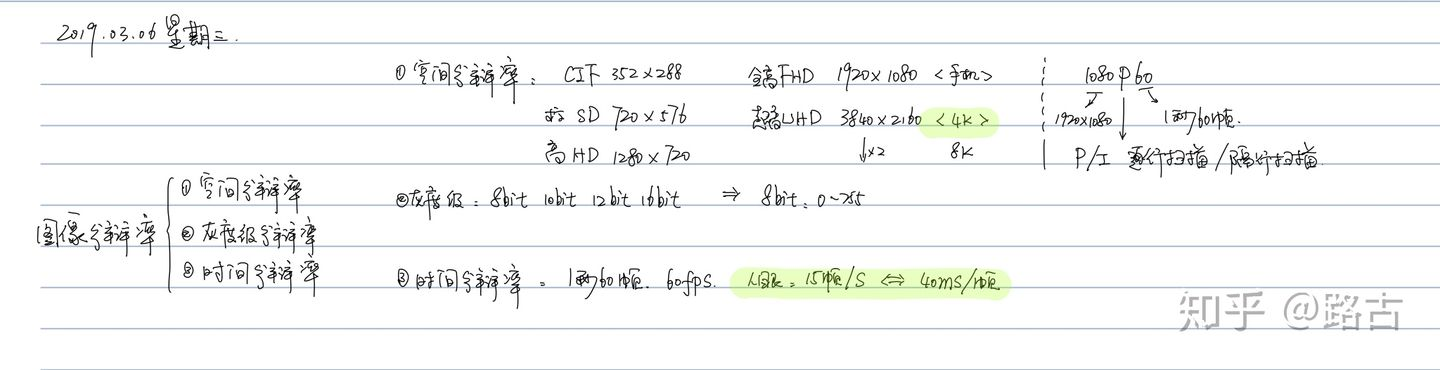 2019.03.06 星期三.
① 空间分辨率: CIF 352×288 全高FHD 1920×1080 <手机> 1080P60
标 SD 720×576 超高UHD 3840×2160 <4K> 1920×1080 1秒60帧.
高 HD 1280×720 ↓×2 8K P/I 逐行扫描/隔行扫描.
图像分辨率
① 空间分辨率
② 灰度级分辨率
③ 时间分辨率
②灰度级: 8bit 10bit 12bit 16bit ⇒ 8bit: 0~255
③时间分辨率: 1秒60帧. 60fps. 人眼: 15帧/S ⇔ 40ms/帧
知乎 @路古